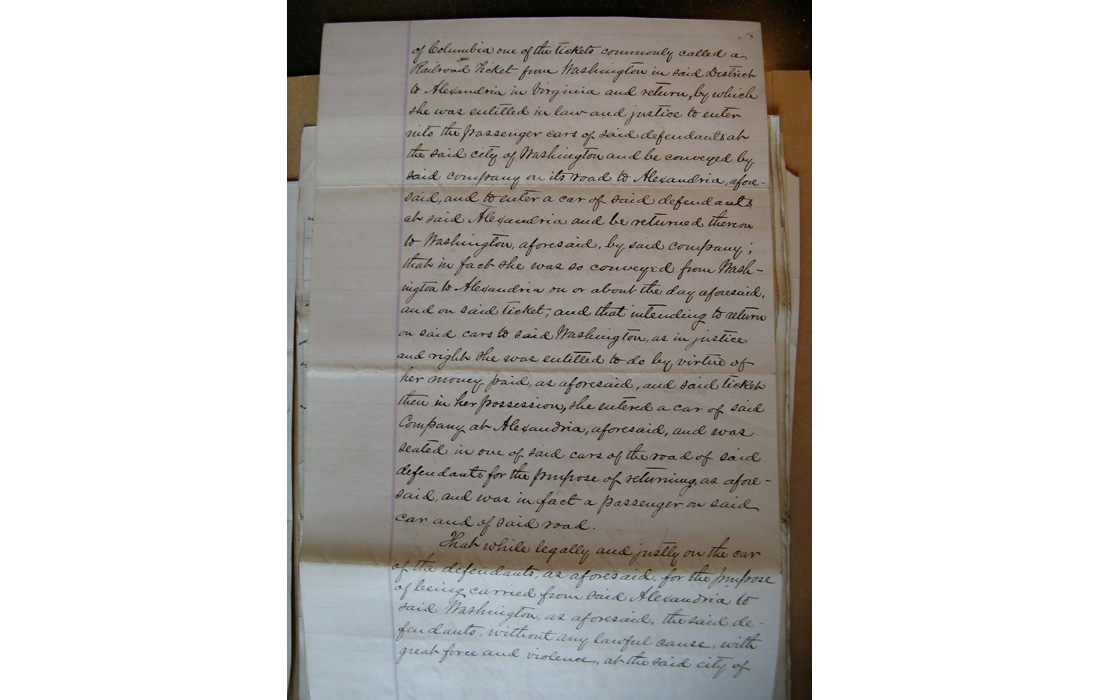 of Columbia one of the tickets commonly called a
Railroad Ticket from Washington in said District
to Alexandria in Virginia and return, by which
she was entitled in law and justice to enter
into the passenger cars of said defendants at
the said city of Washington and be conveyed by
said company on its road to Alexandria, afore-
said, and to enter a car of said defendants
at said Alexandria and be returned thereon
to Washington, aforesaid, by said company;
that in fact she was so conveyed from Wash-
ington to Alexandria on or about the day aforesaid,
and on said ticket; and that intending to return
on said cars to said Washington, as in justice
and right she was entitled to do by virtue of
her money paid, as aforesaid, and said ticket
then in her possession, she entered a car of said
Company at Alexandria, aforesaid, and was
seated in one of said cars of the road of said
defendants for the purpose of returning, as afore-
said, and was in fact a passenger on said
car and of said road.
That while legally and justly on the car
of the defendants, as aforesaid, for the purpose
of being carried from said Alexandria to
said Washington, as aforesaid, the said de-
fendants, without any lawful cause, with
great force and violence, at the said city of